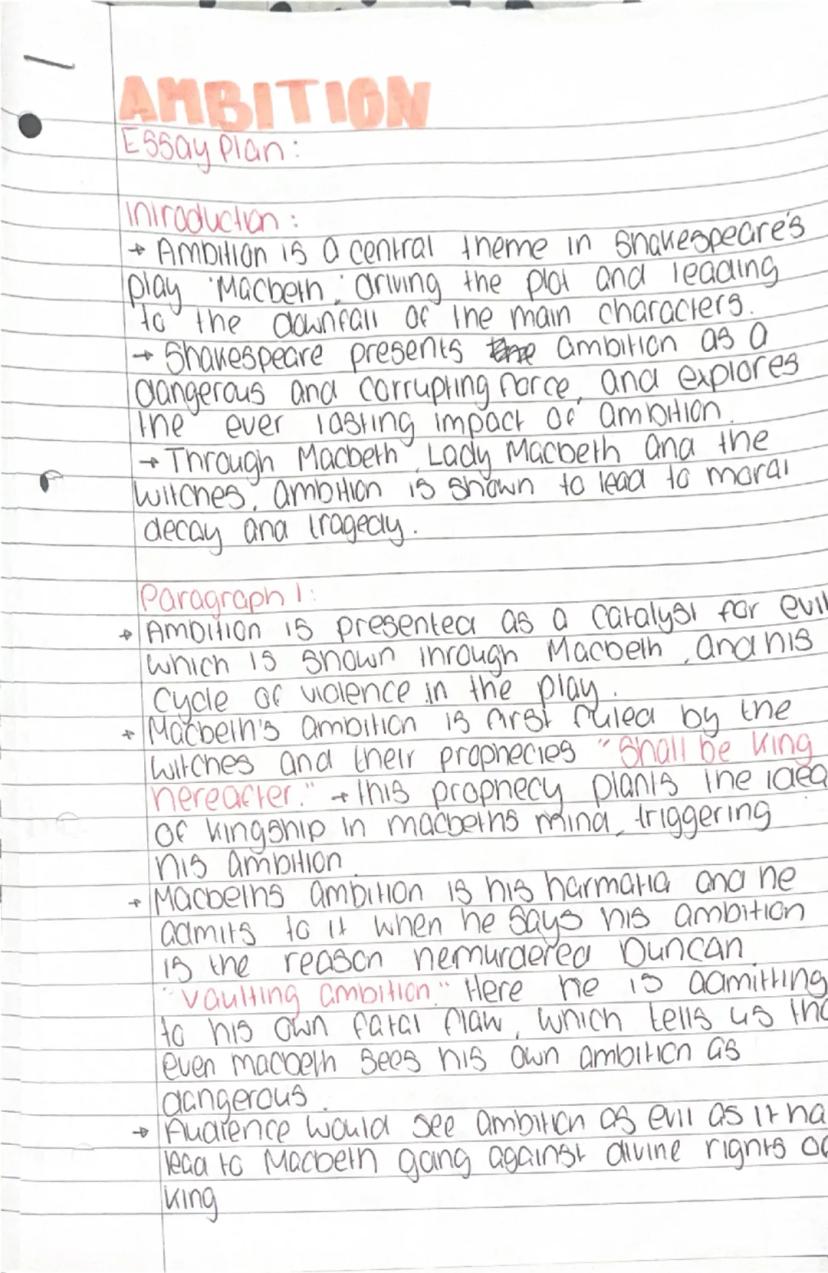 AMBITION
Essay Plan:
Introduction:
→ Ambition is a central theme in Shakespeare's
play 'Macbeth', driving the plot and leading
to the downfall of the main characters.
→ Shakespeare presents the ambition as a
dangerous and corrupting force, and explores
the ever lasting impact of ambition.
→ Through Macbeth, Lady Macbeth and the
witches, ambition is shown to lead to moral
decay and tragedy.
Paragraph 1:
→ Ambition is presented as a catalyst for evil
which is shown through Macbeth, and his
cycle of violence in the play.
→ Macbeth's ambition is first fuled by the
witches and their prophecies "Shall be king
hereafter." → this prophecy plants the idea
of kingship in macbeths mind, triggering
his ambition.
→ Macbeths ambition is his harmatia and he
admits to it when he says his ambition
is the reason he murdered Duncan
"vaulting ambition." Here he is admitting
to his own fatal flaw, which tells us tha
even macbeth sees his own ambition as
dangerous.
→ Audience would see ambition as evil as it ha
lead to Macbeth going against divine rights of
king